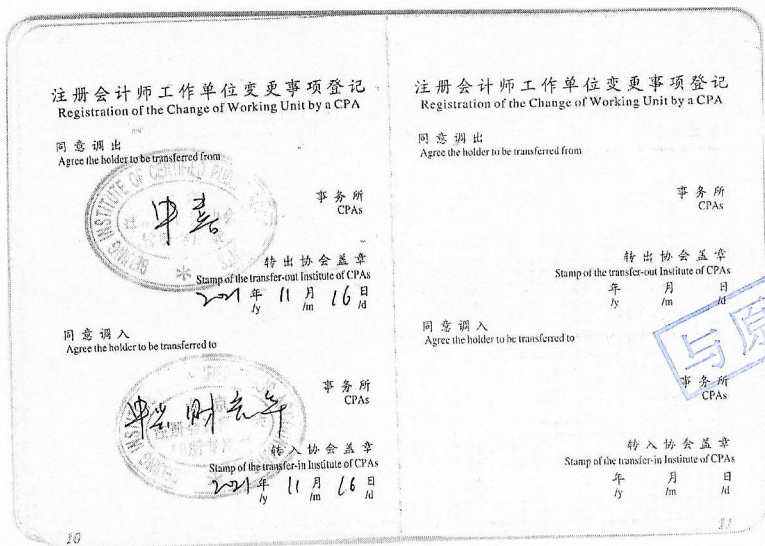 注册会计师工作单位变更事项登记
Registration of the Change of Working Unit by a CPA
同意调出
Agree the holder to be transferred from
BEIJING INSTITUTE OF CERTIFIED PUBLIC
中喜
事务所
CPAs
转出协会盖章
Stamp of the transfer-out Institute of CPAs
2021年 11月 16日
/y /m /d
同意调入
Agree the holder to be transferred to
事务所
CPAs
转入协会盖章
Stamp of the transfer-in Institute of CPAs
2021年 11月 16日
/y /m /d
10
注册会计师工作单位变更事项登记
Registration of the Change of Working Unit by a CPA
同意调出
Agree the holder to be transferred from
事务所
CPAs
转出协会盖章
Stamp of the transfer-out Institute of CPAs
年 月 日
/y /m /d
同意调入
Agree the holder to be transferred to
与原
事务所
CPAs
转入协会盖章
Stamp of the transfer-in Institute of CPAs
年 月 日
/y /m /d
11